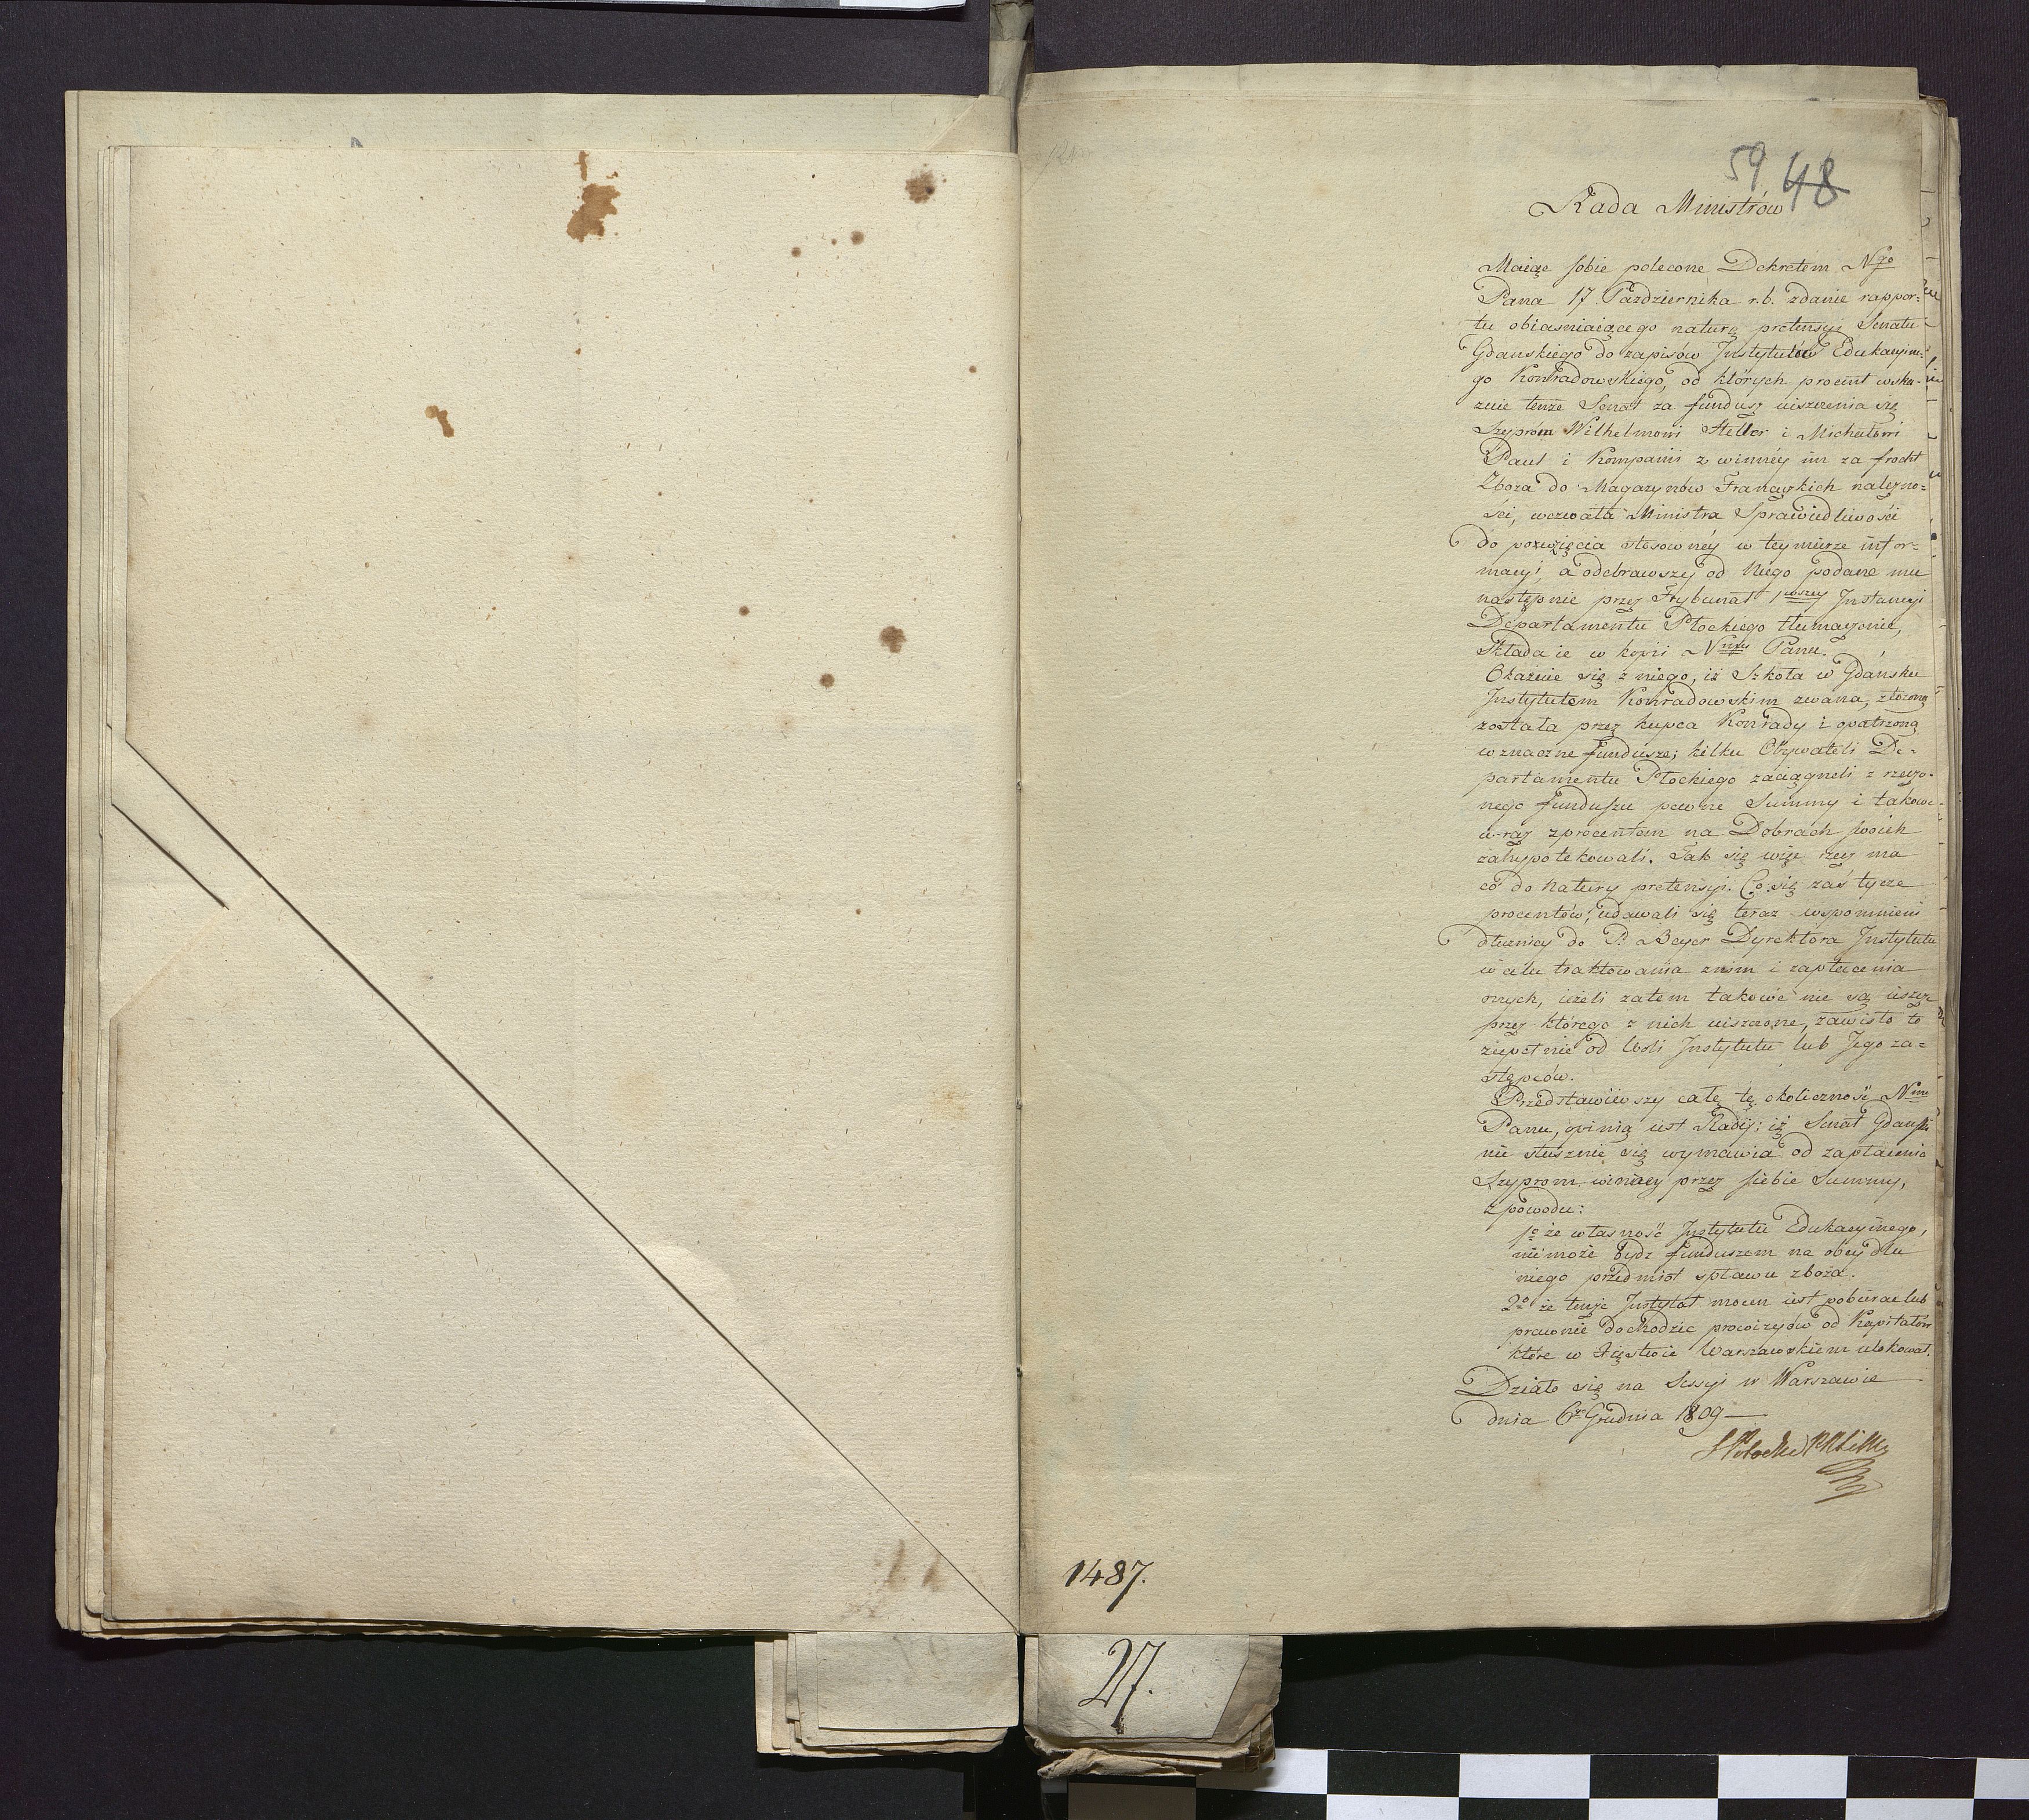 59 48
Rada Ministrów
Maiąc sobie polecone Dekretem Ngo
Pana 17 Października r.b. zdanie rappor:
tu obiasniaiącego naturę pretensyi Senatu
Gdanskiego do zapisów Instytutów Edukacyine:
go Konradowskiego, od których procent wska:
zuie tenże Senat za fundusz uiszczenia się
Szyprom Wilhelmowi Heller i Michałowi
Paul i Kompanii z winnéy im za frocht
Zboza do Magazynów Francuzkich nalezno:
ści, wezwała Ministra Sprawiedliwości
do powzięcia stosownéy w tey mierze infor:
macyi, a odebrawszy od Niego podane mu
następnie przez Trybunał 1wszey Instancyi
Departamentu Płockiego tłumaczenie,
Składa ie w kopii Nmu Panu.
Okazuie się z niego, iż Szkoła w Gdańsku
Instytutem Konradowskim zwana, złożoną
została przez kupca Konrady i opatrzoną
w znaczne fundusze; kilku Obywateli De:
partamentu Płockiego zaciągneli z rzeczo:
nego funduszu pewne Summy i takowe
w raz z procentem na Dobrach swoich
zahypotekowali. Tak się więc rzecz ma
co do natury pretensyi. Co się zaś tycze
procentów, udawali się teraz wspomnieni
dłuznicy do P. Beyer Dyrektora Instytutu
w celu traktowania z nim i zapłacenia
onych, ieżeli zatem takowe nie są ieszcze
przez którego z nich uiszczone, zawisło to
zupełnie od Woli Instytutu lub Jego za:
stępców.
Przedstawiwszy całę tę okoliczność Nmu
Panu, opinią iest Rady; iż Senat Gdański
nie słusznie się wymawia od zapłacenia
Szyprom winney przez siebie Summy,
z powodu:
1o że własność Instytutu Edukacyinego,
nie może bydź funduszem na obcy dla
niego przedmiot spławu zboża.
2o że tenże Instytut mocen iest pobierać lub
prawnie dochodzić prowizyów od Kapitałów
które w Xięstwie Warszawskiem ulokował.
Działo się na Sessyi w Warszawie
dnia 6go Grudnia 1809
1487.
27.